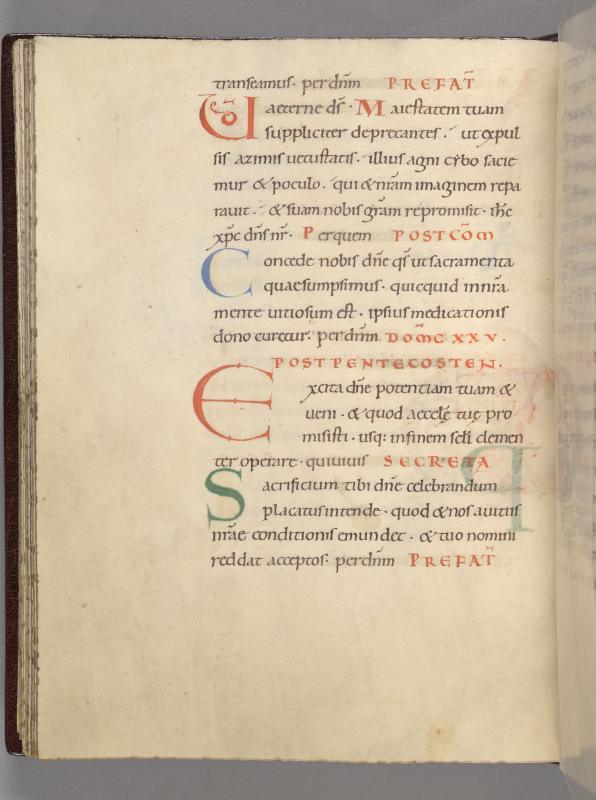 transeamus· per dn̄m PREFAT̄
VD aeterne dš· Maiestatem tuam
suppliciter deprecantes·́ ut expul
sis azimis uetustatis· illius agni cybo sacie
mur & poculo· qui & nr̄am imaginem repa
rauit·́ & suam nobis gr̄am repromisit· ihc̄
xpc̄ dn̄s nr̄· Per quem POSTCOM̄
Concede nobis dn̄e qs̄ ut sacramenta
quae sumpsimus· quicquid in nr̄a
mente uitiosum est· ipsius medicationis
dono curetur· per dn̄m DOM̄C XXV.
POST PENTECOSTEN.
Excita dn̄e potentiam tuam &
ueni· & quod aeccle tuę pro
misisti· usq: in finem sc̄li clemen
ter operare· qui uiuis SECRETA
Sacrificium tibi dn̄e celebrandum
placatus intende· quod & nos a uitiis
nr̄ae conditionis emundet· & tuo nomini
reddat acceptos· per dn̄m PREFAT̄